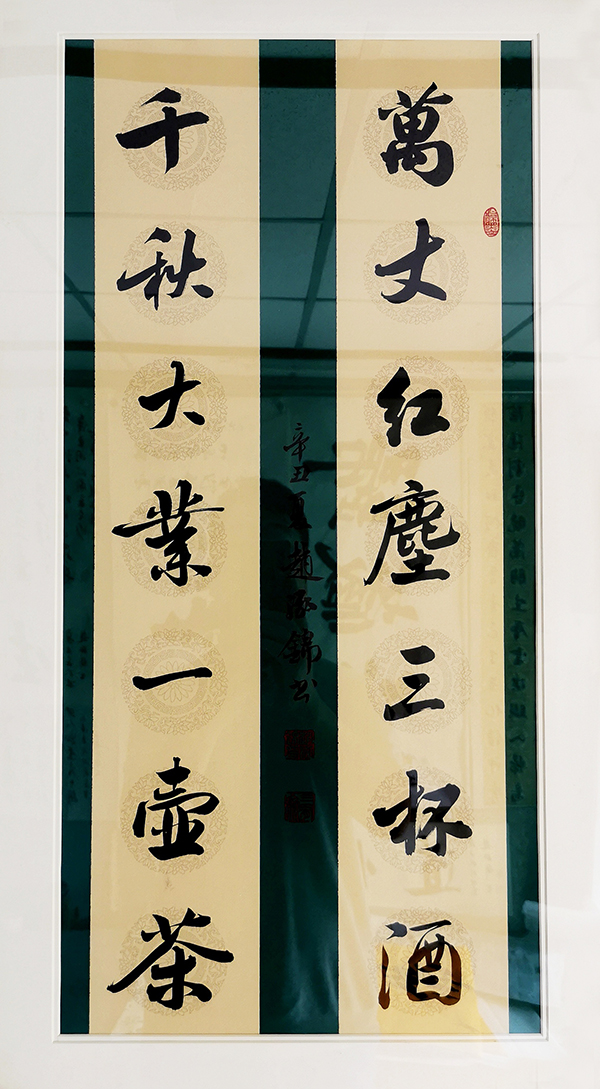 萬丈红塵三杯酒
千秋大業一壺茶
辛丑夏趙錦书